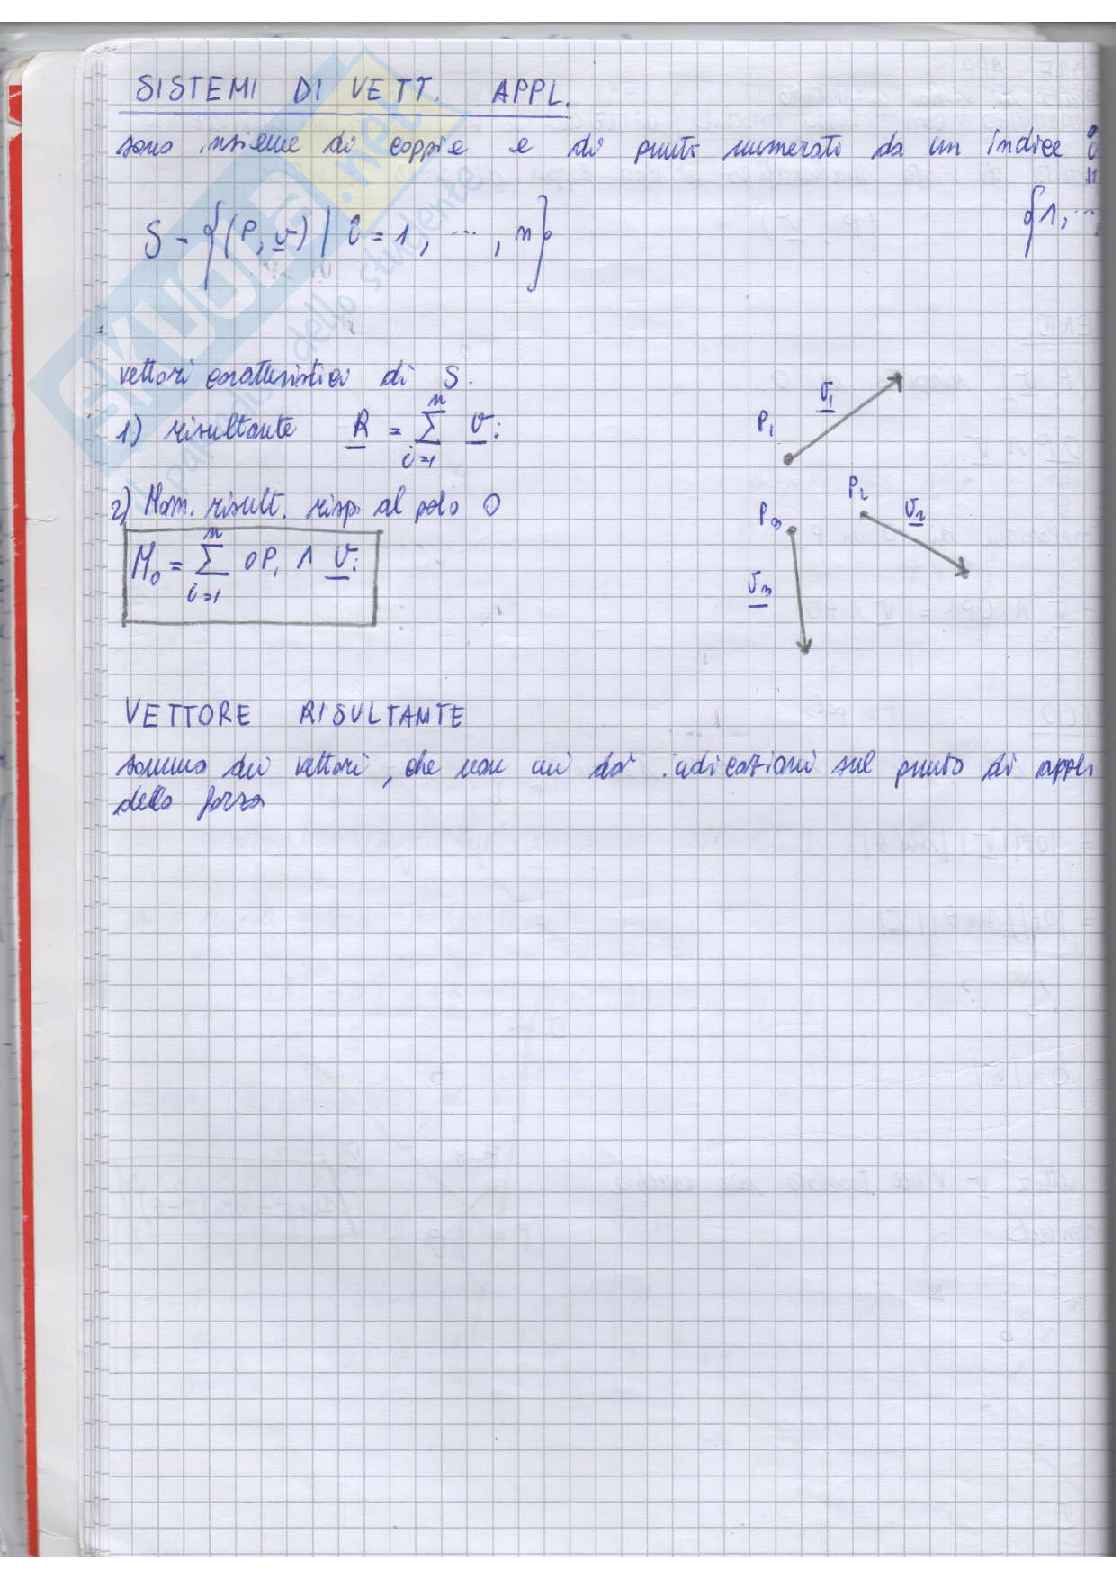 SISTEMI DI VETT. APPL.
sono insieme di coppie e di punti numerati da un indice
S = {(P, v) | i = 1, ..., n}
{1, ...
vettori caratteristici di S.
1) risultante R = n ∑ i=1 v i
2) Mom. risult. risp. al polo O
M₀ = n ∑ i=1 OP i ∧ v i
P₁ v₁
P₂ v₂
P₃ v₃
VETTORE RISULTANTE
somma dei vettori, che non mi dà indicazioni sul punto di appli
della forza
SKUOLA.net
il portale dello studente